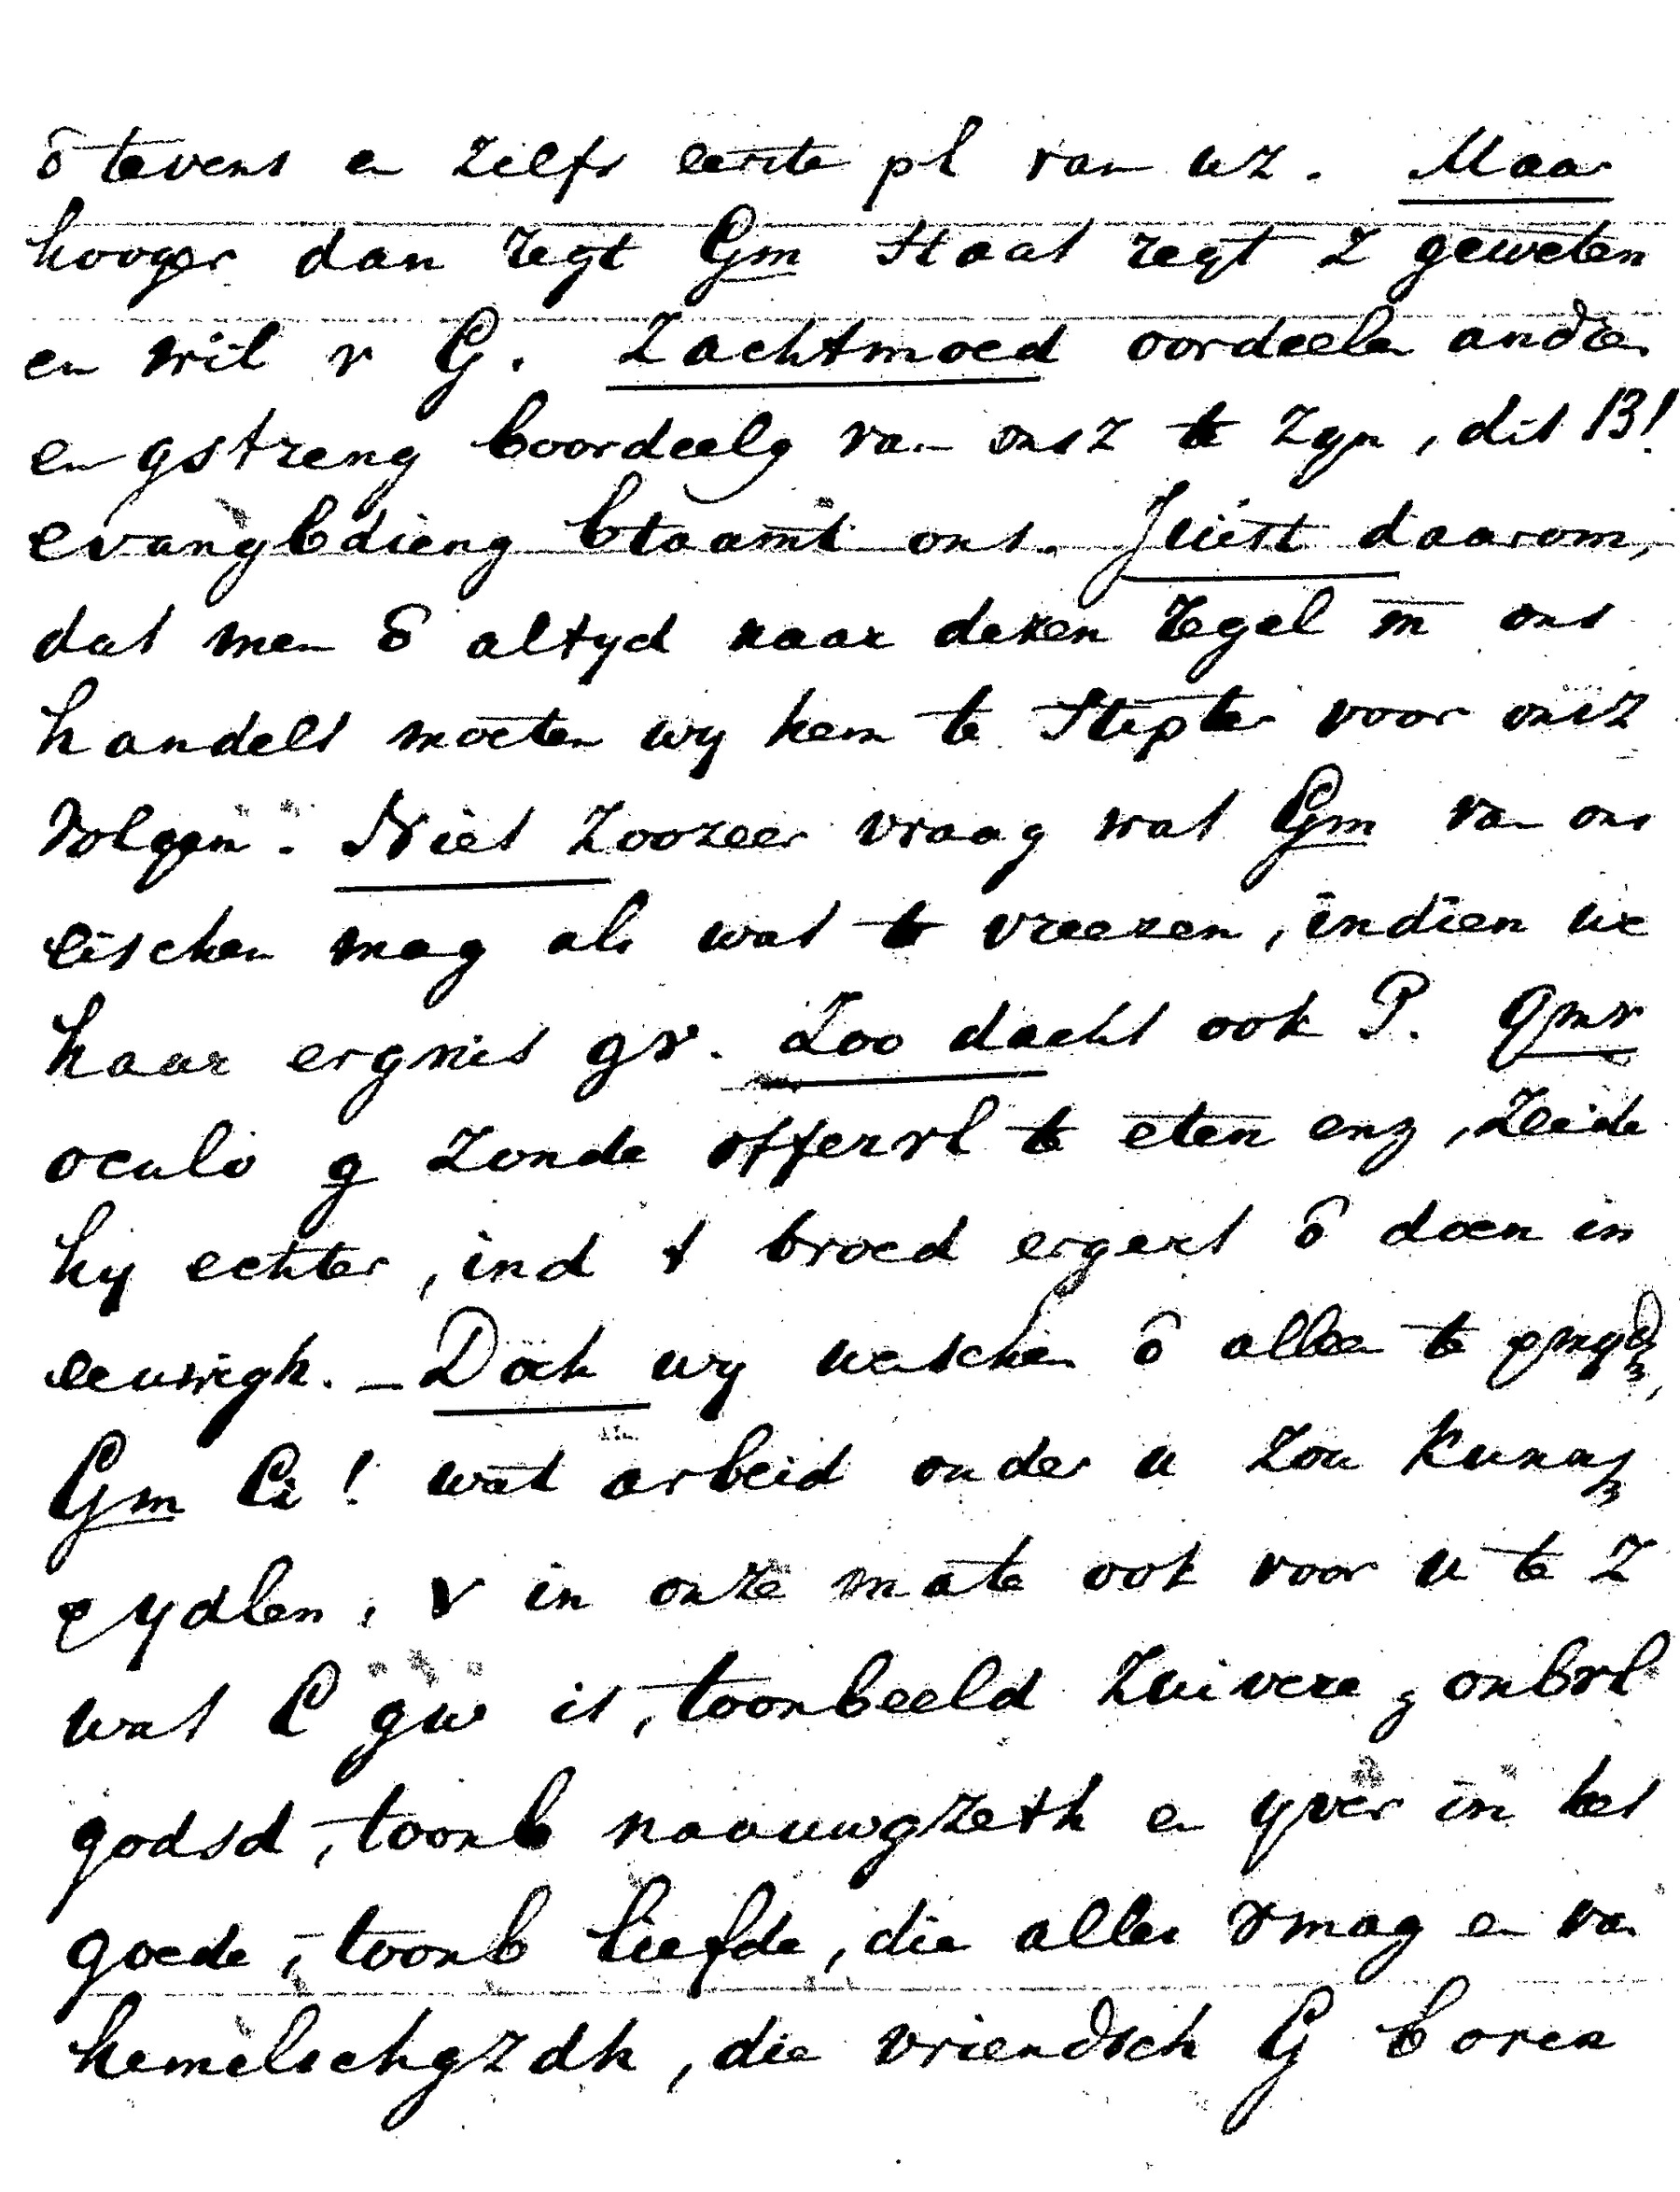 ō tevens en zelfs eerste pl van uz. Maar
hooger dan regt Gm staat regt z geweten
en wil v G. Zachtmoed oordeelen andren
en gstreng boordeelg van onsz te zyn, dit B!
evangbdieng btaamt ons. Juist daarom,
dat men ō altyd naar dezen regel m ons
handelt moeten wy hem te stipter voor onsz
volgen. Niet zoozeer vraag wat Gm van ons
eischen mag als wat te vreezen, indien we
haar ergnis gv. Zoo dacht ook P. Gmr
oculo g zonde offervl te eten enz, zeide
hy echter, ind t broed ergert ō doen in
eeuwigh. — Doch wy wenschen ō alleen te
Gm Ci! wat arbeid onder u zou kunn
ydlen, v in onze mate ook voor u te z
wat C gw is, toonbeeld zuivere onbvl
godsd, toonb naauwgzeth en yver in het
goede, toonb liefde, die alles vmag en van
hemelschgzdh, die vriendsch G boven